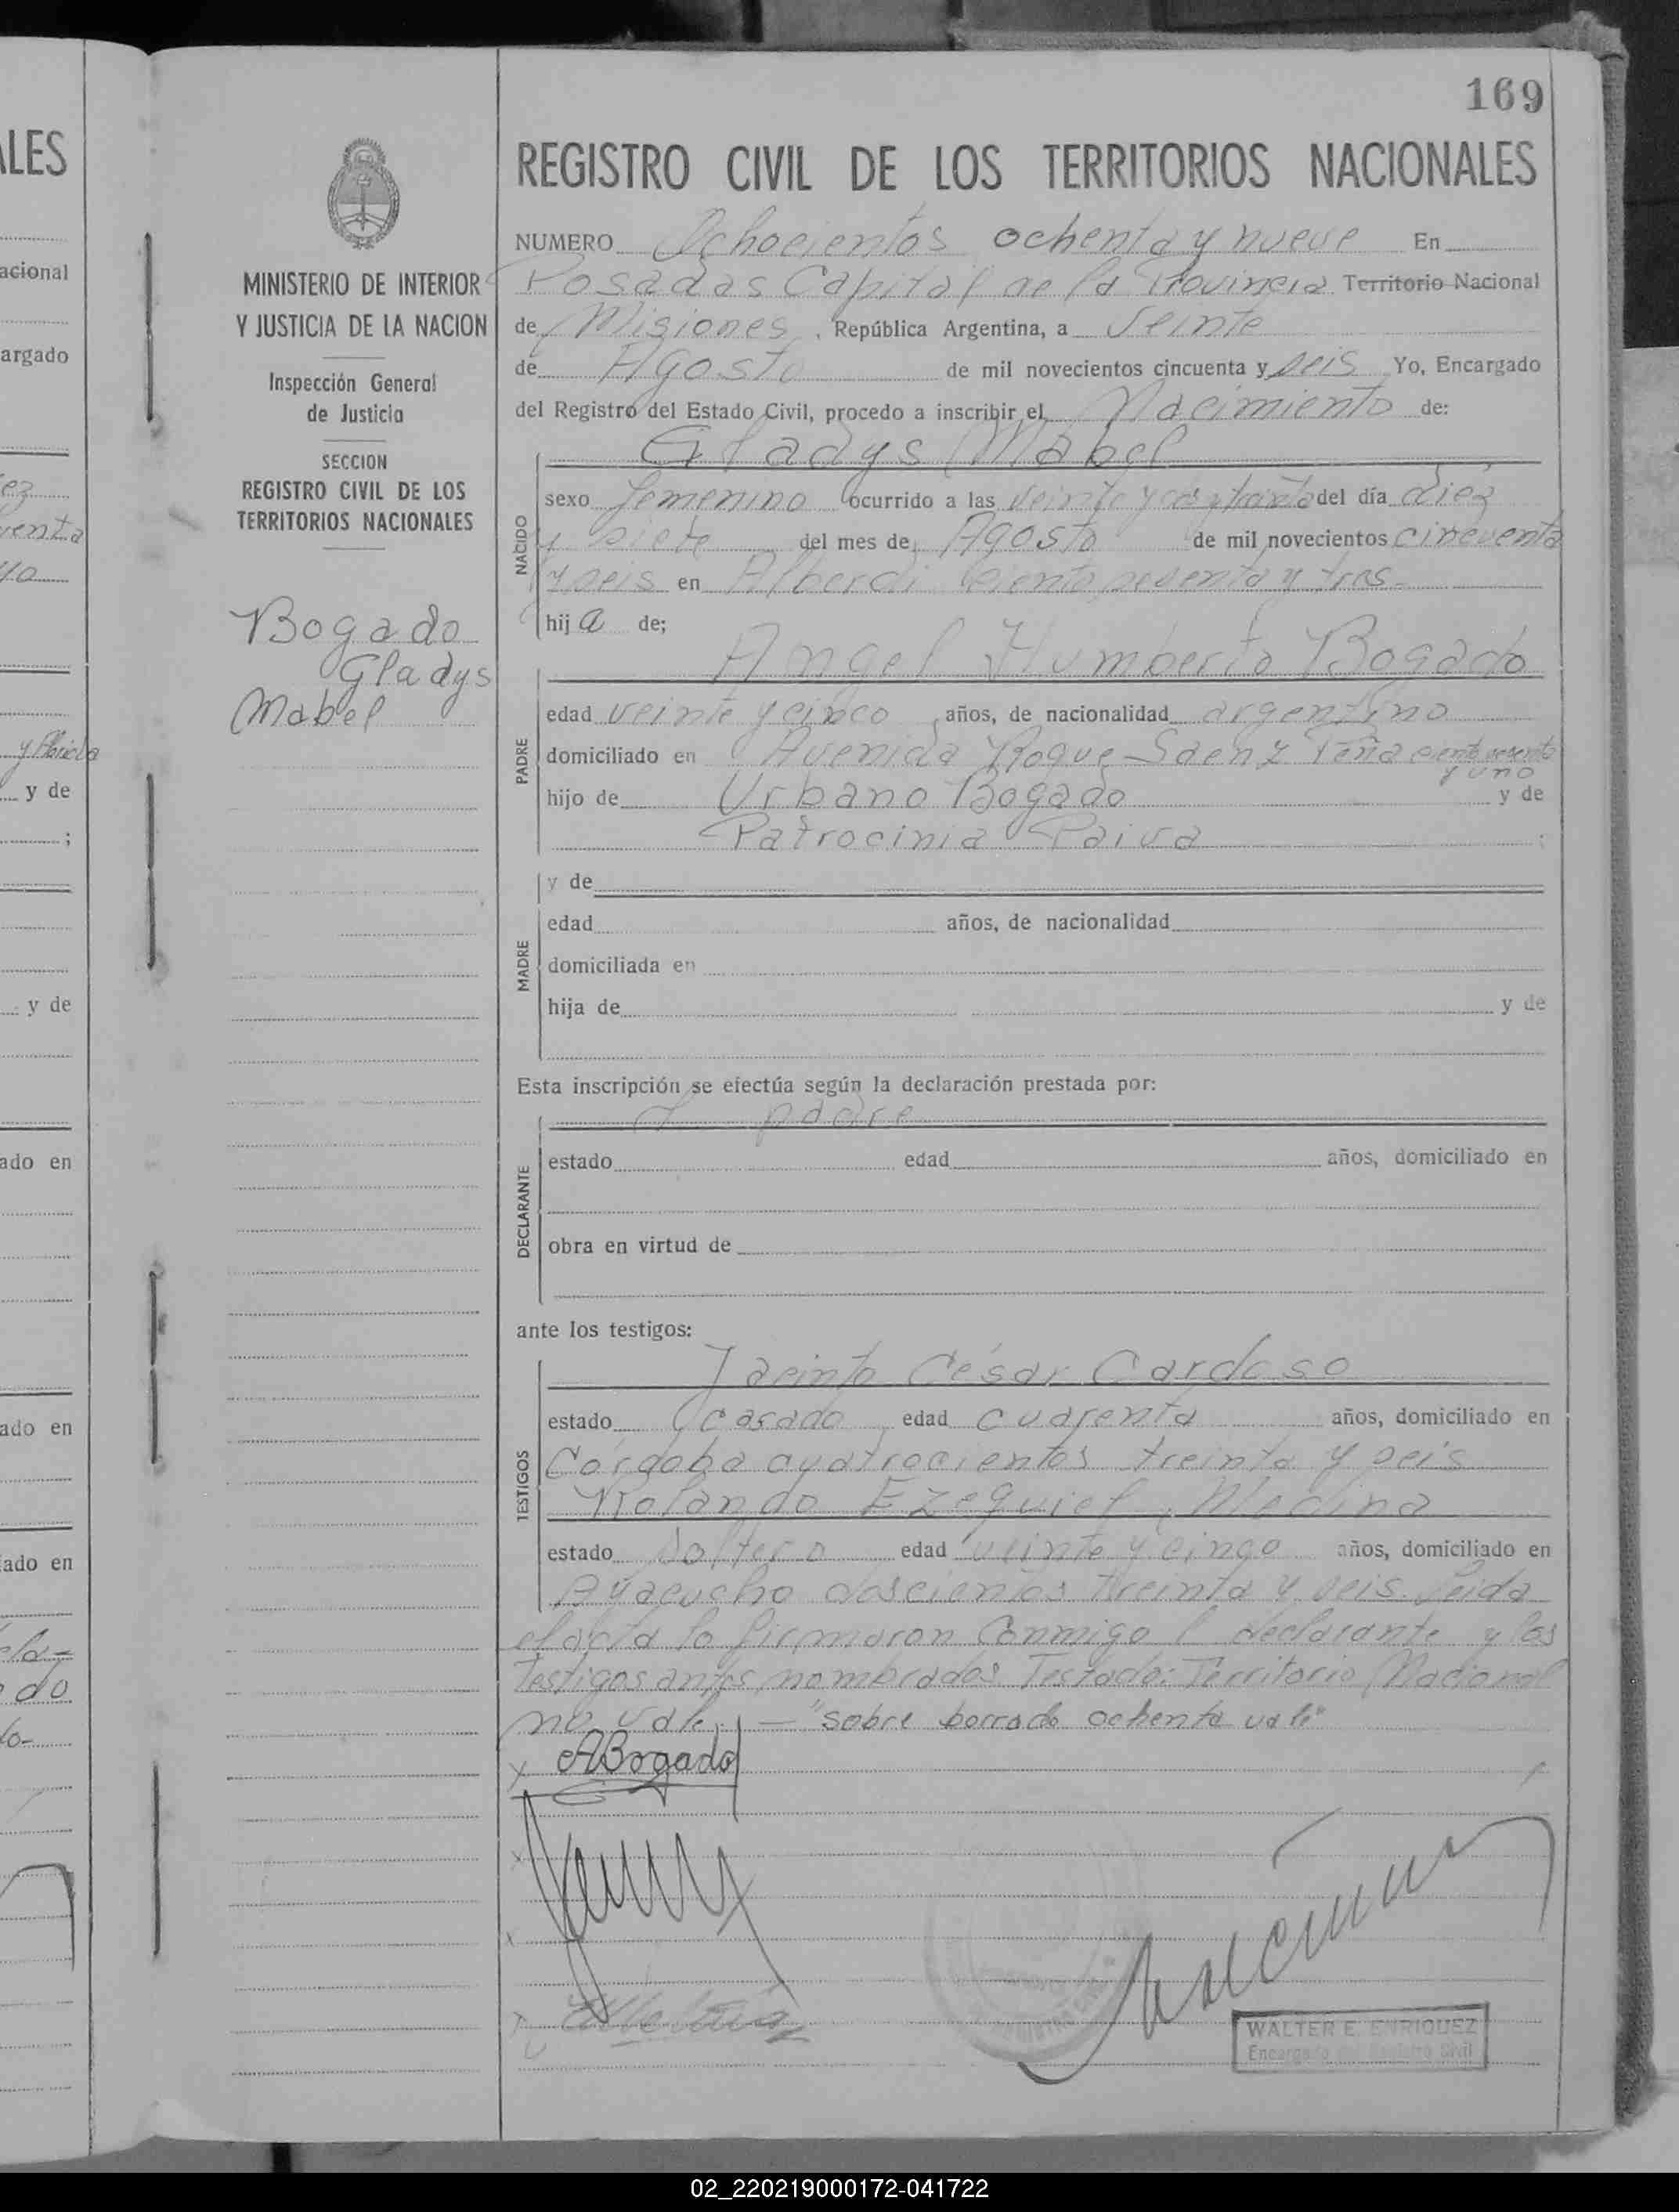 169
REGISTRO CIVIL DE LOS TERRITORIOS NACIONALES
NUMERO Ochocientos ochenta y nueve En
Posadas Capital de la Provincia Territorio Nacional
de Misiones, República Argentina, a Veinte
de Agosto de mil novecientos cincuenta y seis Yo, Encargado
del Registro del Estado Civil, procedo a inscribir el Nacimiento de:
MINISTERIO DE INTERIOR
Y JUSTICIA DE LA NACION
Inspección General
de Justicia
SECCION
REGISTRO CIVIL DE LOS
TERRITORIOS NACIONALES
Bogado
Gladys
Mabel
NACIDO
Gladys Mabel
sexo femenino ocurrido a las veinte y treinta del día diez
y siete del mes de Agosto de mil novecientos cincuenta
y seis en Alberdi ciento sesenta y tres
hija de;
PADRE
Angel Humberto Bogado
edad veinte y cinco años, de nacionalidad argentino
domiciliado en Avenida Roque Saenz Peña ciento sesenta
y uno
hijo de Urbano Bogado y de
Patrocinia Paiva ;
MADRE
y de
edad años, de nacionalidad
domiciliada en
hija de y de
Esta inscripción se efectúa según la declaración prestada por:
DECLARANTE
l padre
estado edad años, domiciliado en
obra en virtud de
ante los testigos:
TESTIGOS
Jacinto César Cardoso
estado casado edad cuarenta años, domiciliado en
Córdoba cuatrocientos treinta y seis
Rolando Ezequiel Medina
estado soltero edad veinte y cinco años, domiciliado en
Ayacucho doscientos treinta y seis. Leida
el acta la firmaron conmigo l declarante y los
testigos antes nombrados Testado: Territorio Nacional
no vale. — "sobre borrado ochenta vale"
x ABogado
WALTER E. ENRIQUEZ
Encargado del Registro Civil
LES
acional
argado
ez
venta
y de
;
y de
ado en
ado en
ado en
do
02_220219000172-041722